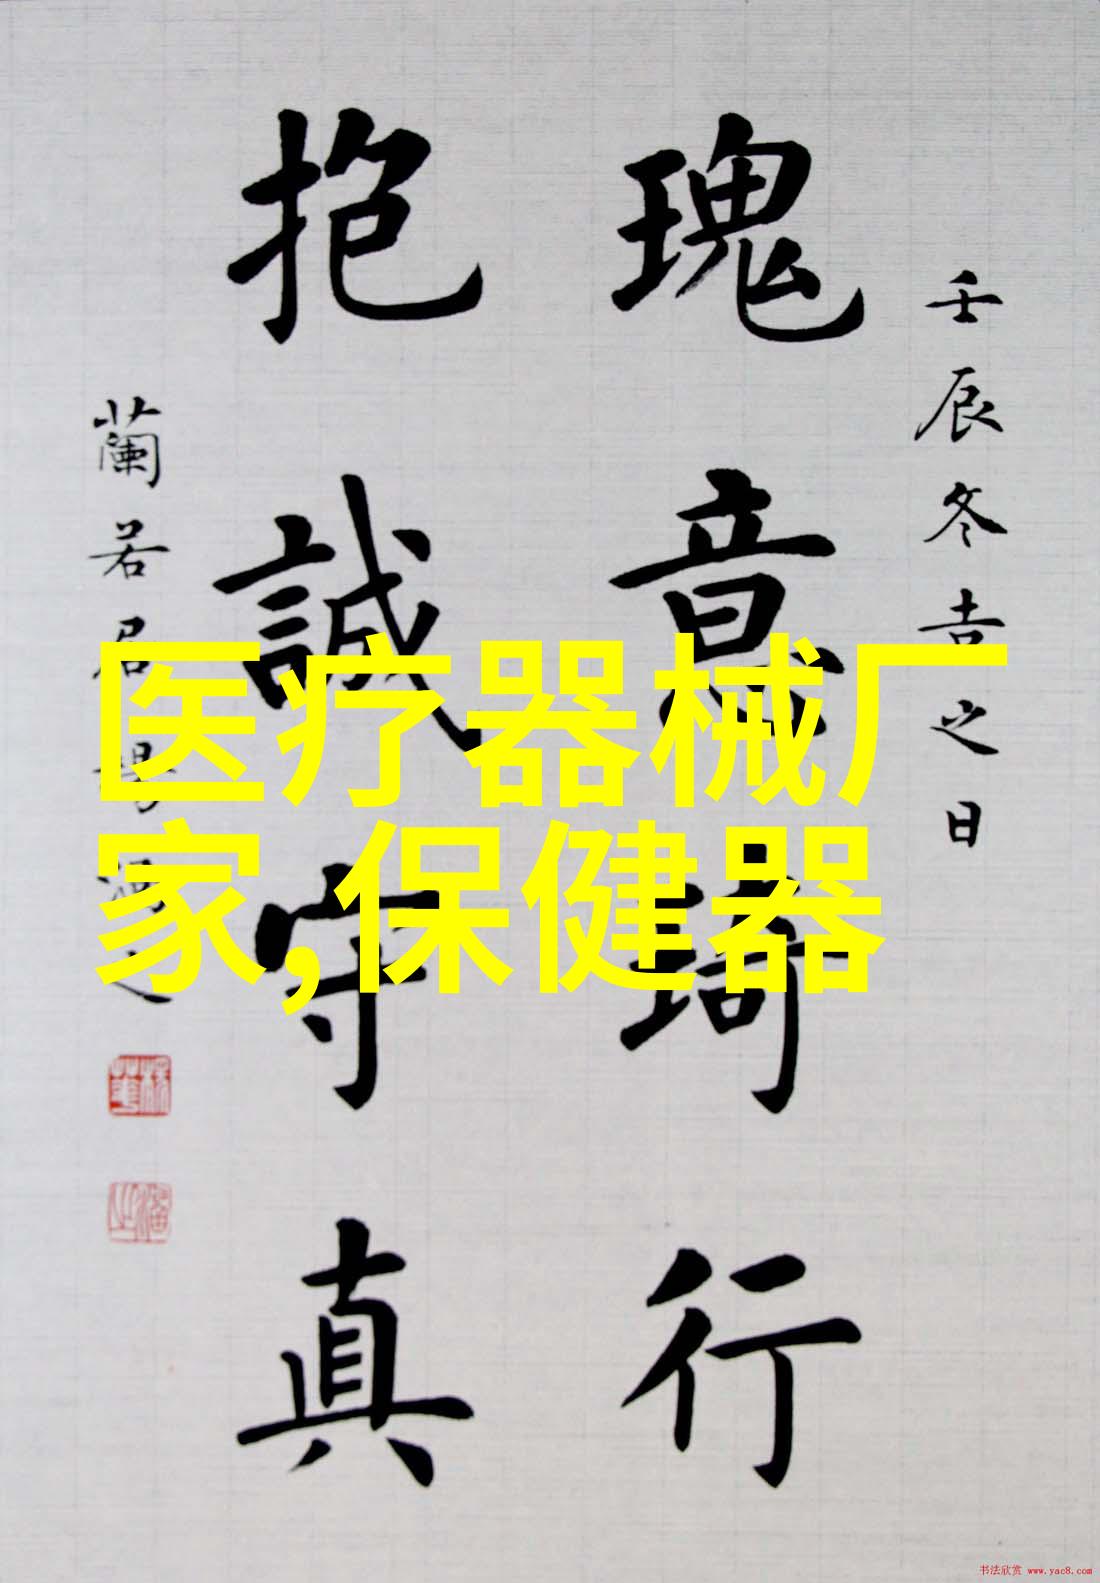 壬辰冬吉之日
瑰意琦行
抱誠守真
蘭若居
医疗器械厂
家,保健器
书法欣赏 www.yac8.com